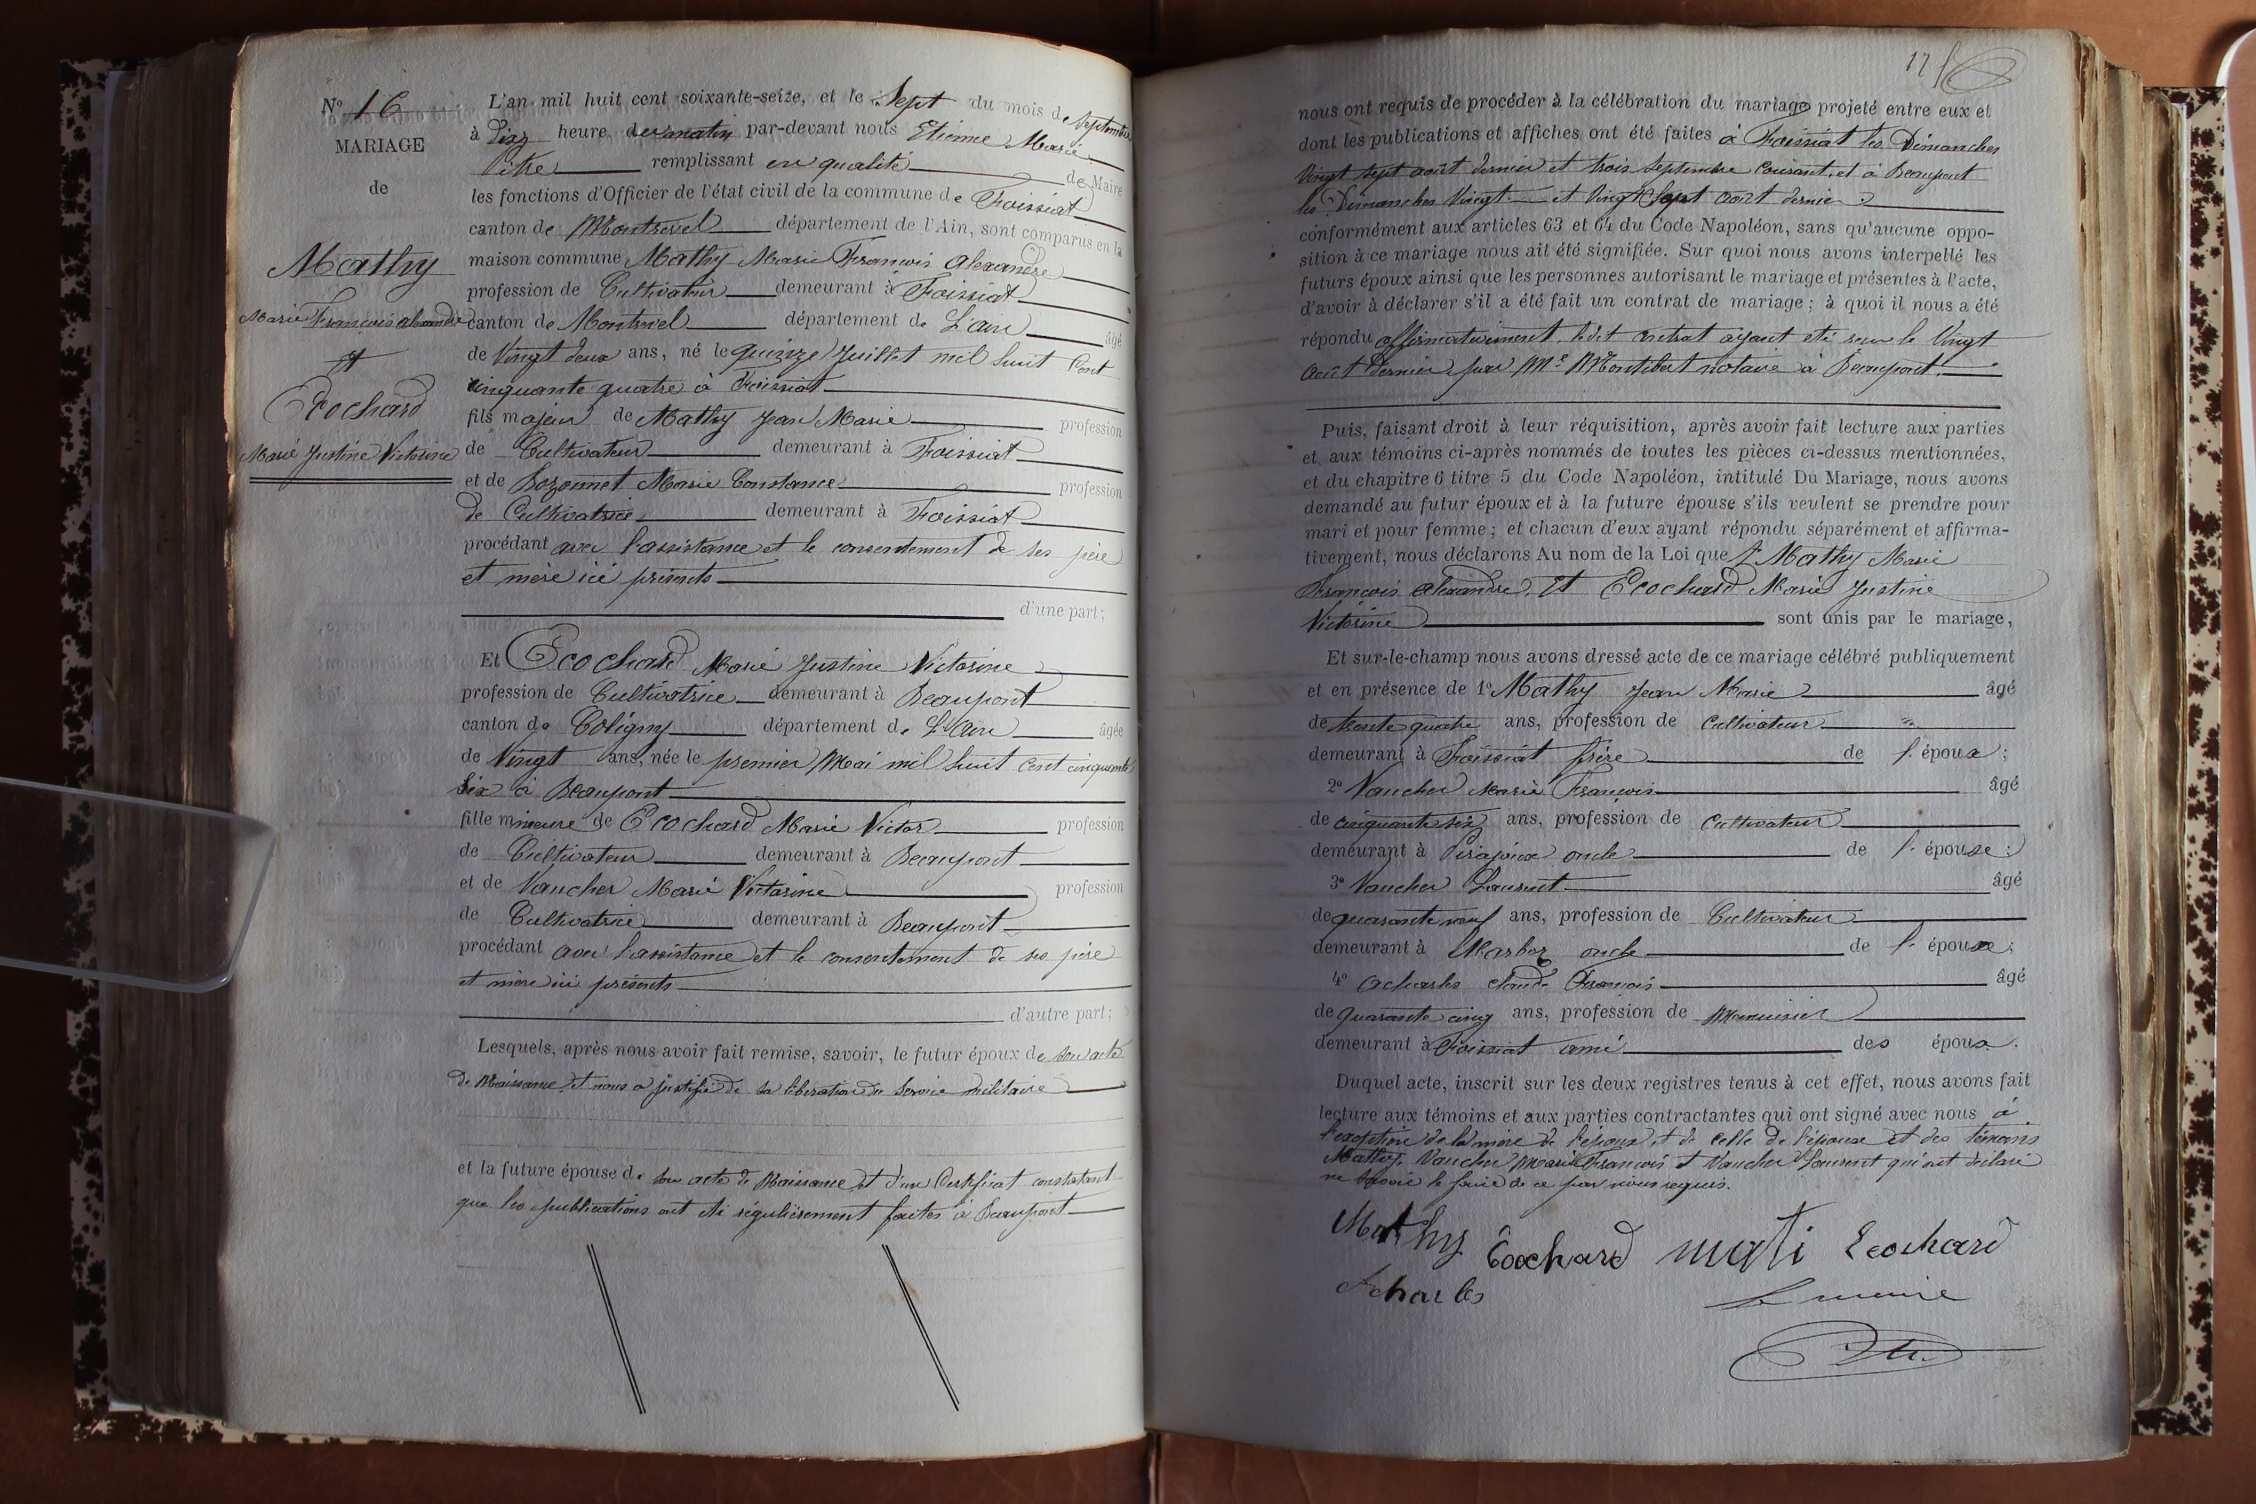 N° 16
MARIAGE
de
Mathy
Marie François Alexandre
et
Ecochard
Marie Justine Victorine
L'an mil huit cent soixante-seize, et le Sept du mois de Septembre
à Dix heure du matin par-devant nous Etienne Marie
Pitre remplissant en qualité de Maire
les fonctions d'Officier de l'état civil de la commune de Foissiat
canton de Montrevel département de l'Ain, sont comparus en la
maison commune Mathy Marie François Alexandre
profession de Cultivateur demeurant à Foissiat
canton de Montrevel département de L'ain âgé
de Vingt deux ans, né le quinze Juillet mil huit Cent
cinquante quatre à Foissiat
fils majeur de Mathy Jean Marie profession
de Cultivateur demeurant à Foissiat
et de Marie Constance profession
de Cultivatrice demeurant à Foissiat
procédant avec l'assistance et le consentement de ses père
et mère ici présents
d'une part;
Et Ecochard Marie Justine Victorine
profession de Cultivatrice demeurant à Beaupont
canton de Coligny département de L'ain âgée
de Vingt ans, née le premier Mai mil huit Cent cinquante
Six à Beaupont
fille mineure de Ecochard Marie Victor profession
de Cultivateur demeurant à Beaupont
et de Vaucher Marie Victorine profession
de Cultivatrice demeurant à Beaupont
procédant avec l'assistance et le consentement de ses père
et mère ici présents
d'autre part;
Lesquels, après nous avoir fait remise, savoir, le futur époux de son acte
de Naissance et nous a justifié de sa libération du Service militaire
et la future épouse de son acte de Naissance et d'un Certificat constatant
que les publications ont été régulièrement faites à Beaupont
17
nous ont requis de procéder à la célébration du mariage projeté entre eux et
dont les publications et affiches ont été faites à Foissiat les Dimanches
Vingt sept août dernier et trois Septembre courant, et à Beaupont
les Dimanches Vingt et Vingt Sept août dernier
conformément aux articles 63 et 64 du Code Napoléon, sans qu'aucune oppo-
sition à ce mariage nous ait été signifiée. Sur quoi nous avons interpellé les
futurs époux ainsi que les personnes autorisant le mariage et présentes à l'acte,
d'avoir à déclarer s'il a été fait un contrat de mariage; à quoi il nous a été
répondu affirmativement, ledit contrat ayant été reçu le Vingt
août dernier par Me Montibert notaire à Beaupont.
Puis, faisant droit à leur réquisition, après avoir fait lecture aux parties
et aux témoins ci-après nommés de toutes les pièces ci-dessus mentionnées,
et du chapitre 6 titre 5 du Code Napoléon, intitulé Du Mariage, nous avons
demandé au futur époux et à la future épouse s'ils veulent se prendre pour
mari et pour femme; et chacun d'eux ayant répondu séparément et affirma-
tivement, nous déclarons Au nom de la Loi que Mathy Marie
François Alexandre, Et Ecochard Marie Justine
Victorine sont unis par le mariage,
Et sur-le-champ nous avons dressé acte de ce mariage célébré publiquement
et en présence de 1° Mathy Jean Marie âgé
de trente quatre ans, profession de Cultivateur
demeurant à Foissiat frère de l'époux;
2° Vaucher Marie François âgé
de cinquante six ans, profession de Cultivateur
demeurant à Pirajoux oncle de l'épouse;
3° Vaucher Laurent âgé
de quarante neuf ans, profession de Cultivateur
demeurant à Marboz oncle de l'épouse;
4° Acharles Claude François âgé
de quarante cinq ans, profession de Menuisier
demeurant à Foissiat ami des époux.
Duquel acte, inscrit sur les deux registres tenus à cet effet, nous avons fait
lecture aux témoins et aux parties contractantes qui ont signé avec nous à
l'exception de la mère de l'époux et de celle de l'épouse et des témoins
Mathy, Vaucher Marie François et Vaucher Laurent qui ont déclaré
ne savoir le faire de ce par nous requis.
Mathy Ecochard mati Ecochard
Acharles
Le maire